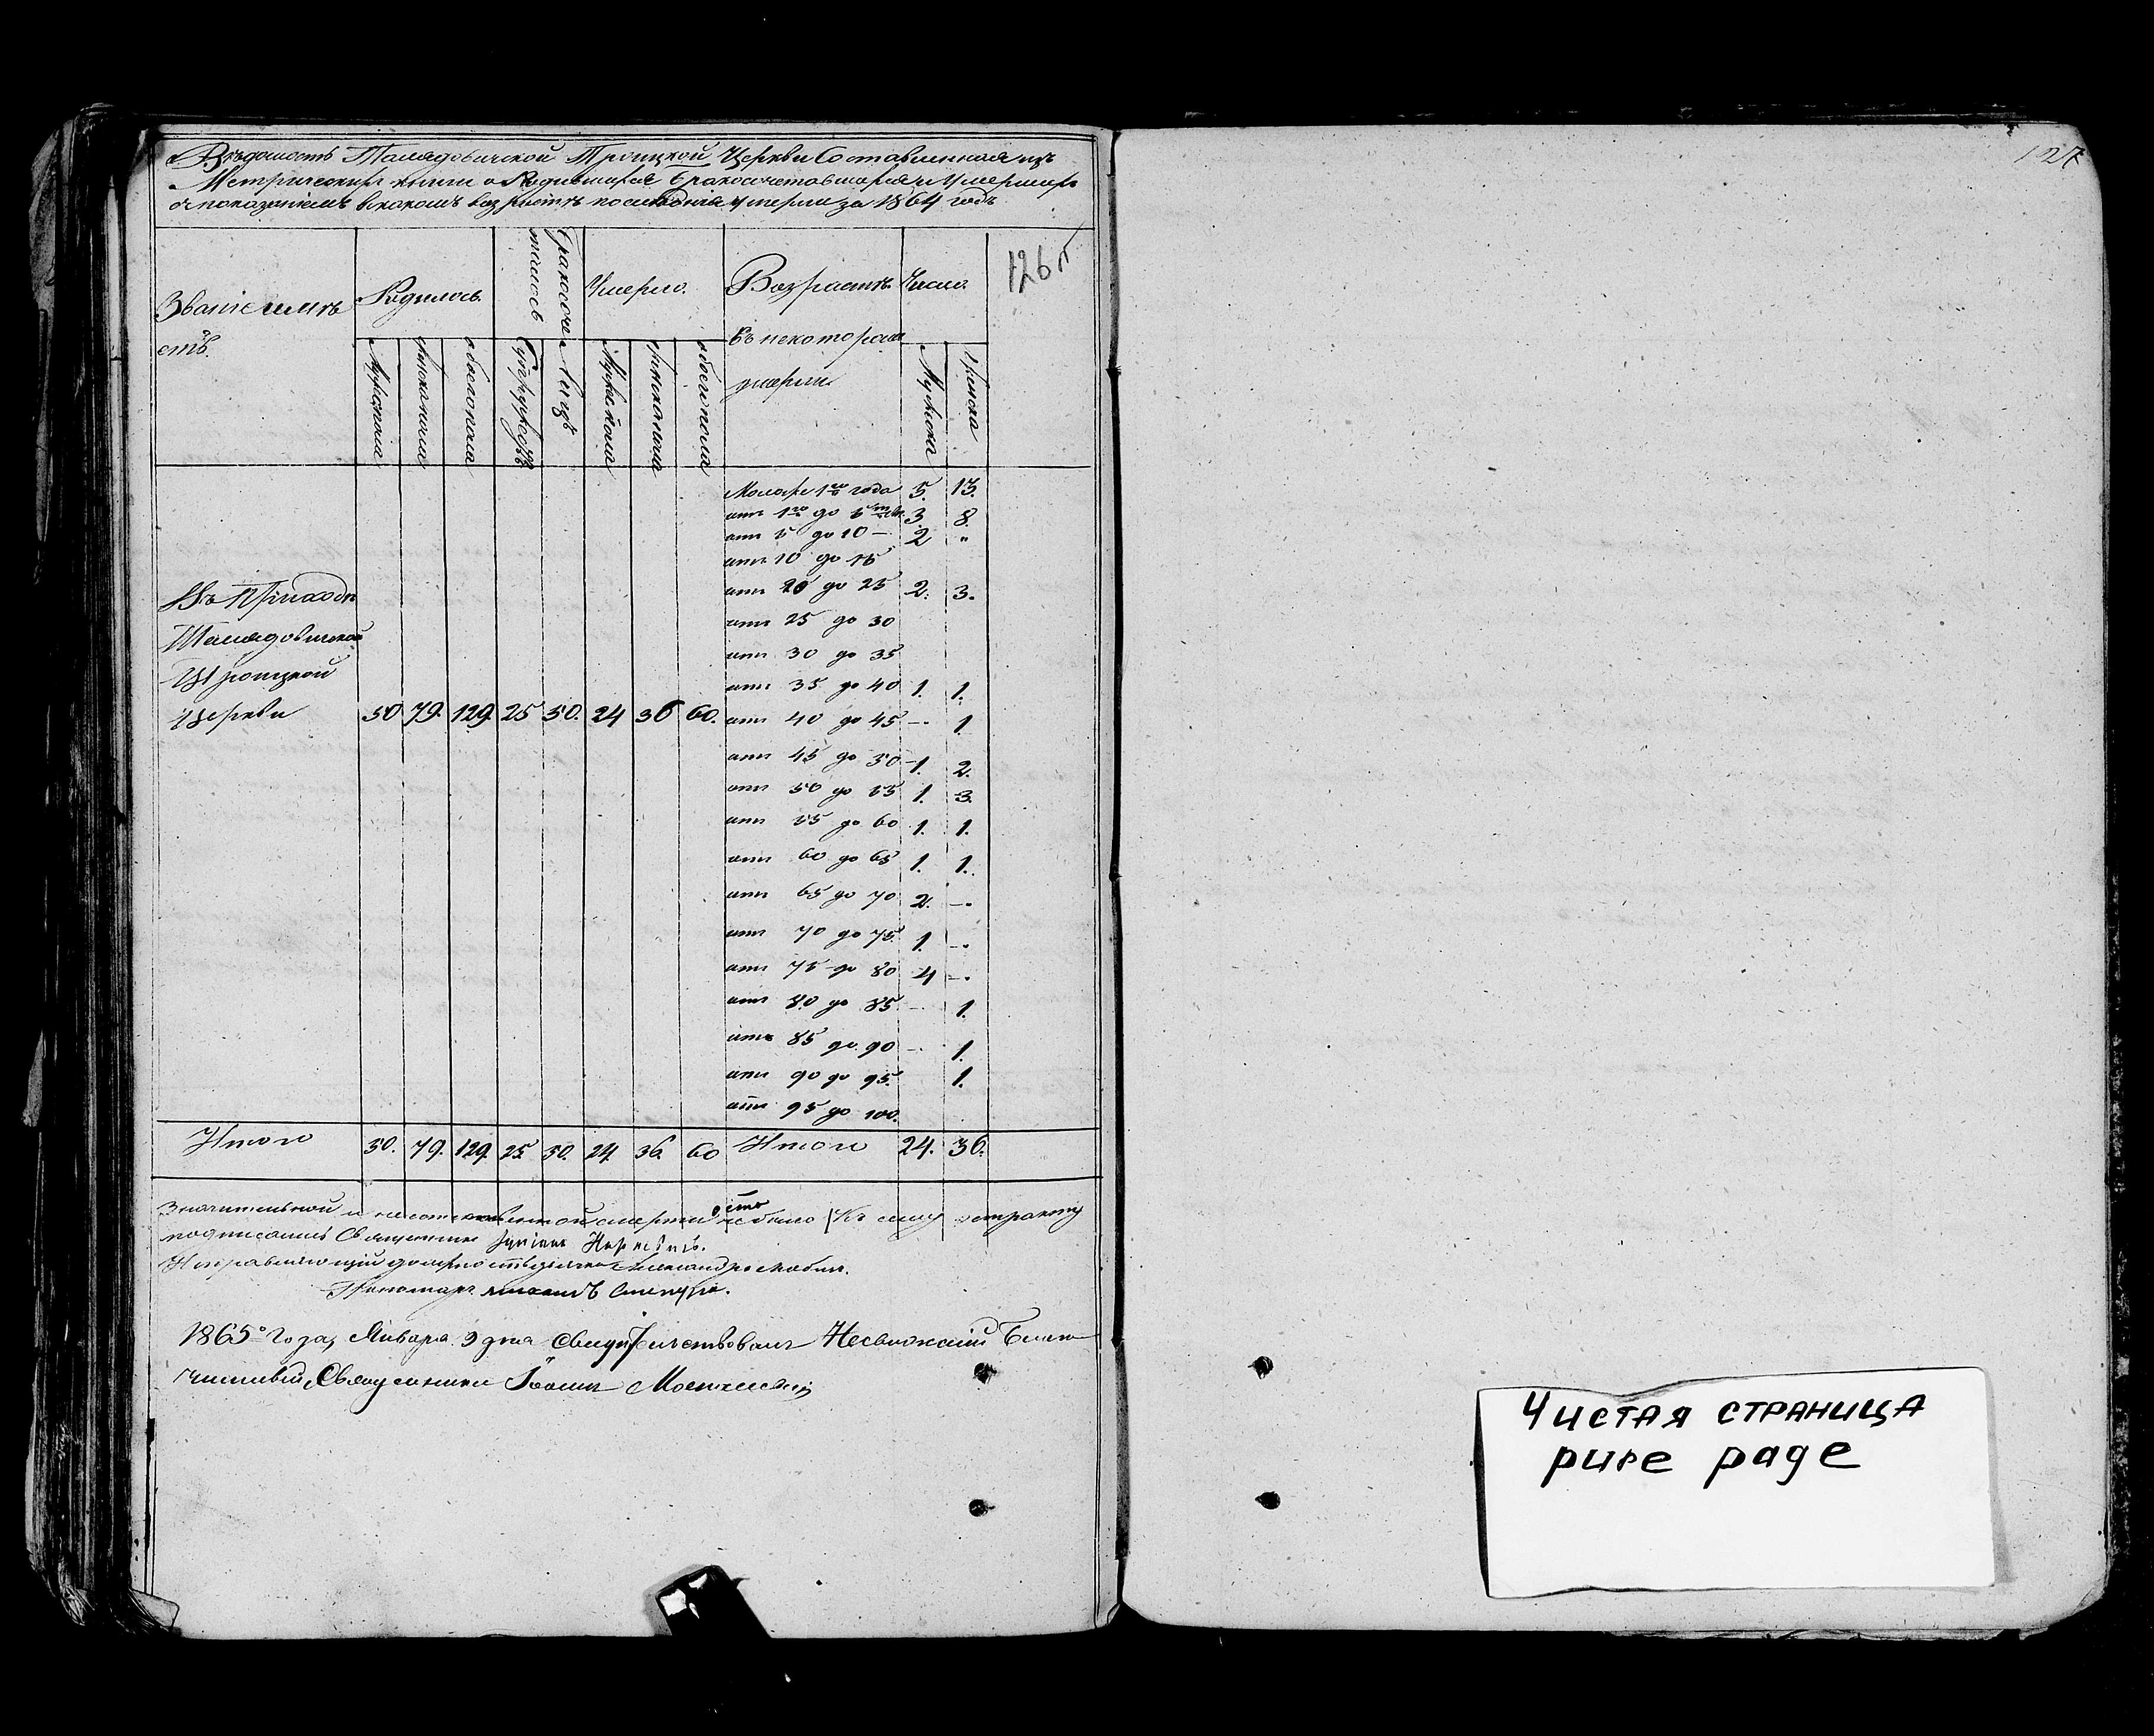 Вѣдомость Талядовичской Троицкой Церкви Составленная изъ
Метрической книги о Родившихся Бракосочетавшихся и Умершихъ
съ показаніемъ въ какомъ возрастѣ послѣдніе умерли за 1864 годъ
126 об
Званіе мѣстъ
Родилось
Бракосочетались
Умерло
Возрастъ въ некоторомъ умерли
Число
Мужескаго
женскаго
обоего пола
Супружествъ
Лицъ
Мужескаго
женскаго
обоего пола
Мужска
Женска
Молодже 1го года 5. 13.
отъ 1го до 5ти 3. 8.
отъ 5 до 10 — 2 "
отъ 10 до 15
отъ 20 до 25 2. 3.
отъ 25 до 30
отъ 30 до 35
отъ 35 до 40 1. 1.
Въ Приходѣ
Талядовичской
Троицкой
Церкви 50 79. 129. 25 50. 24 36 60. отъ 40 до 45 —. 1
отъ 45 до 50 1. 2.
отъ 50 до 55 1. 3.
отъ 55 до 60 1. 1.
отъ 60 до 65 1. 1.
отъ 65 до 70 2. —.
отъ 70 до 75 1. —.
отъ 75 до 80 4 —.
отъ 80 до 85 — 1.
отъ 85 до 90 — 1.
отъ 90 до 95. 1.
отъ 95 до 100.
Итого 50. 79. 129. 25. 50. 24. 36. 60 Итого 24. 36.
Значительной и смерти не было Къ сему экстракту
подписались Священникъ
Исправляющій должность дьячка Александръ
Пономарь
1865го Года, Января 9 дня Свидѣтельствовалъ Несвижскій Благо
чинный, Священникъ Іоаннъ
127
Чистая страница
pure page